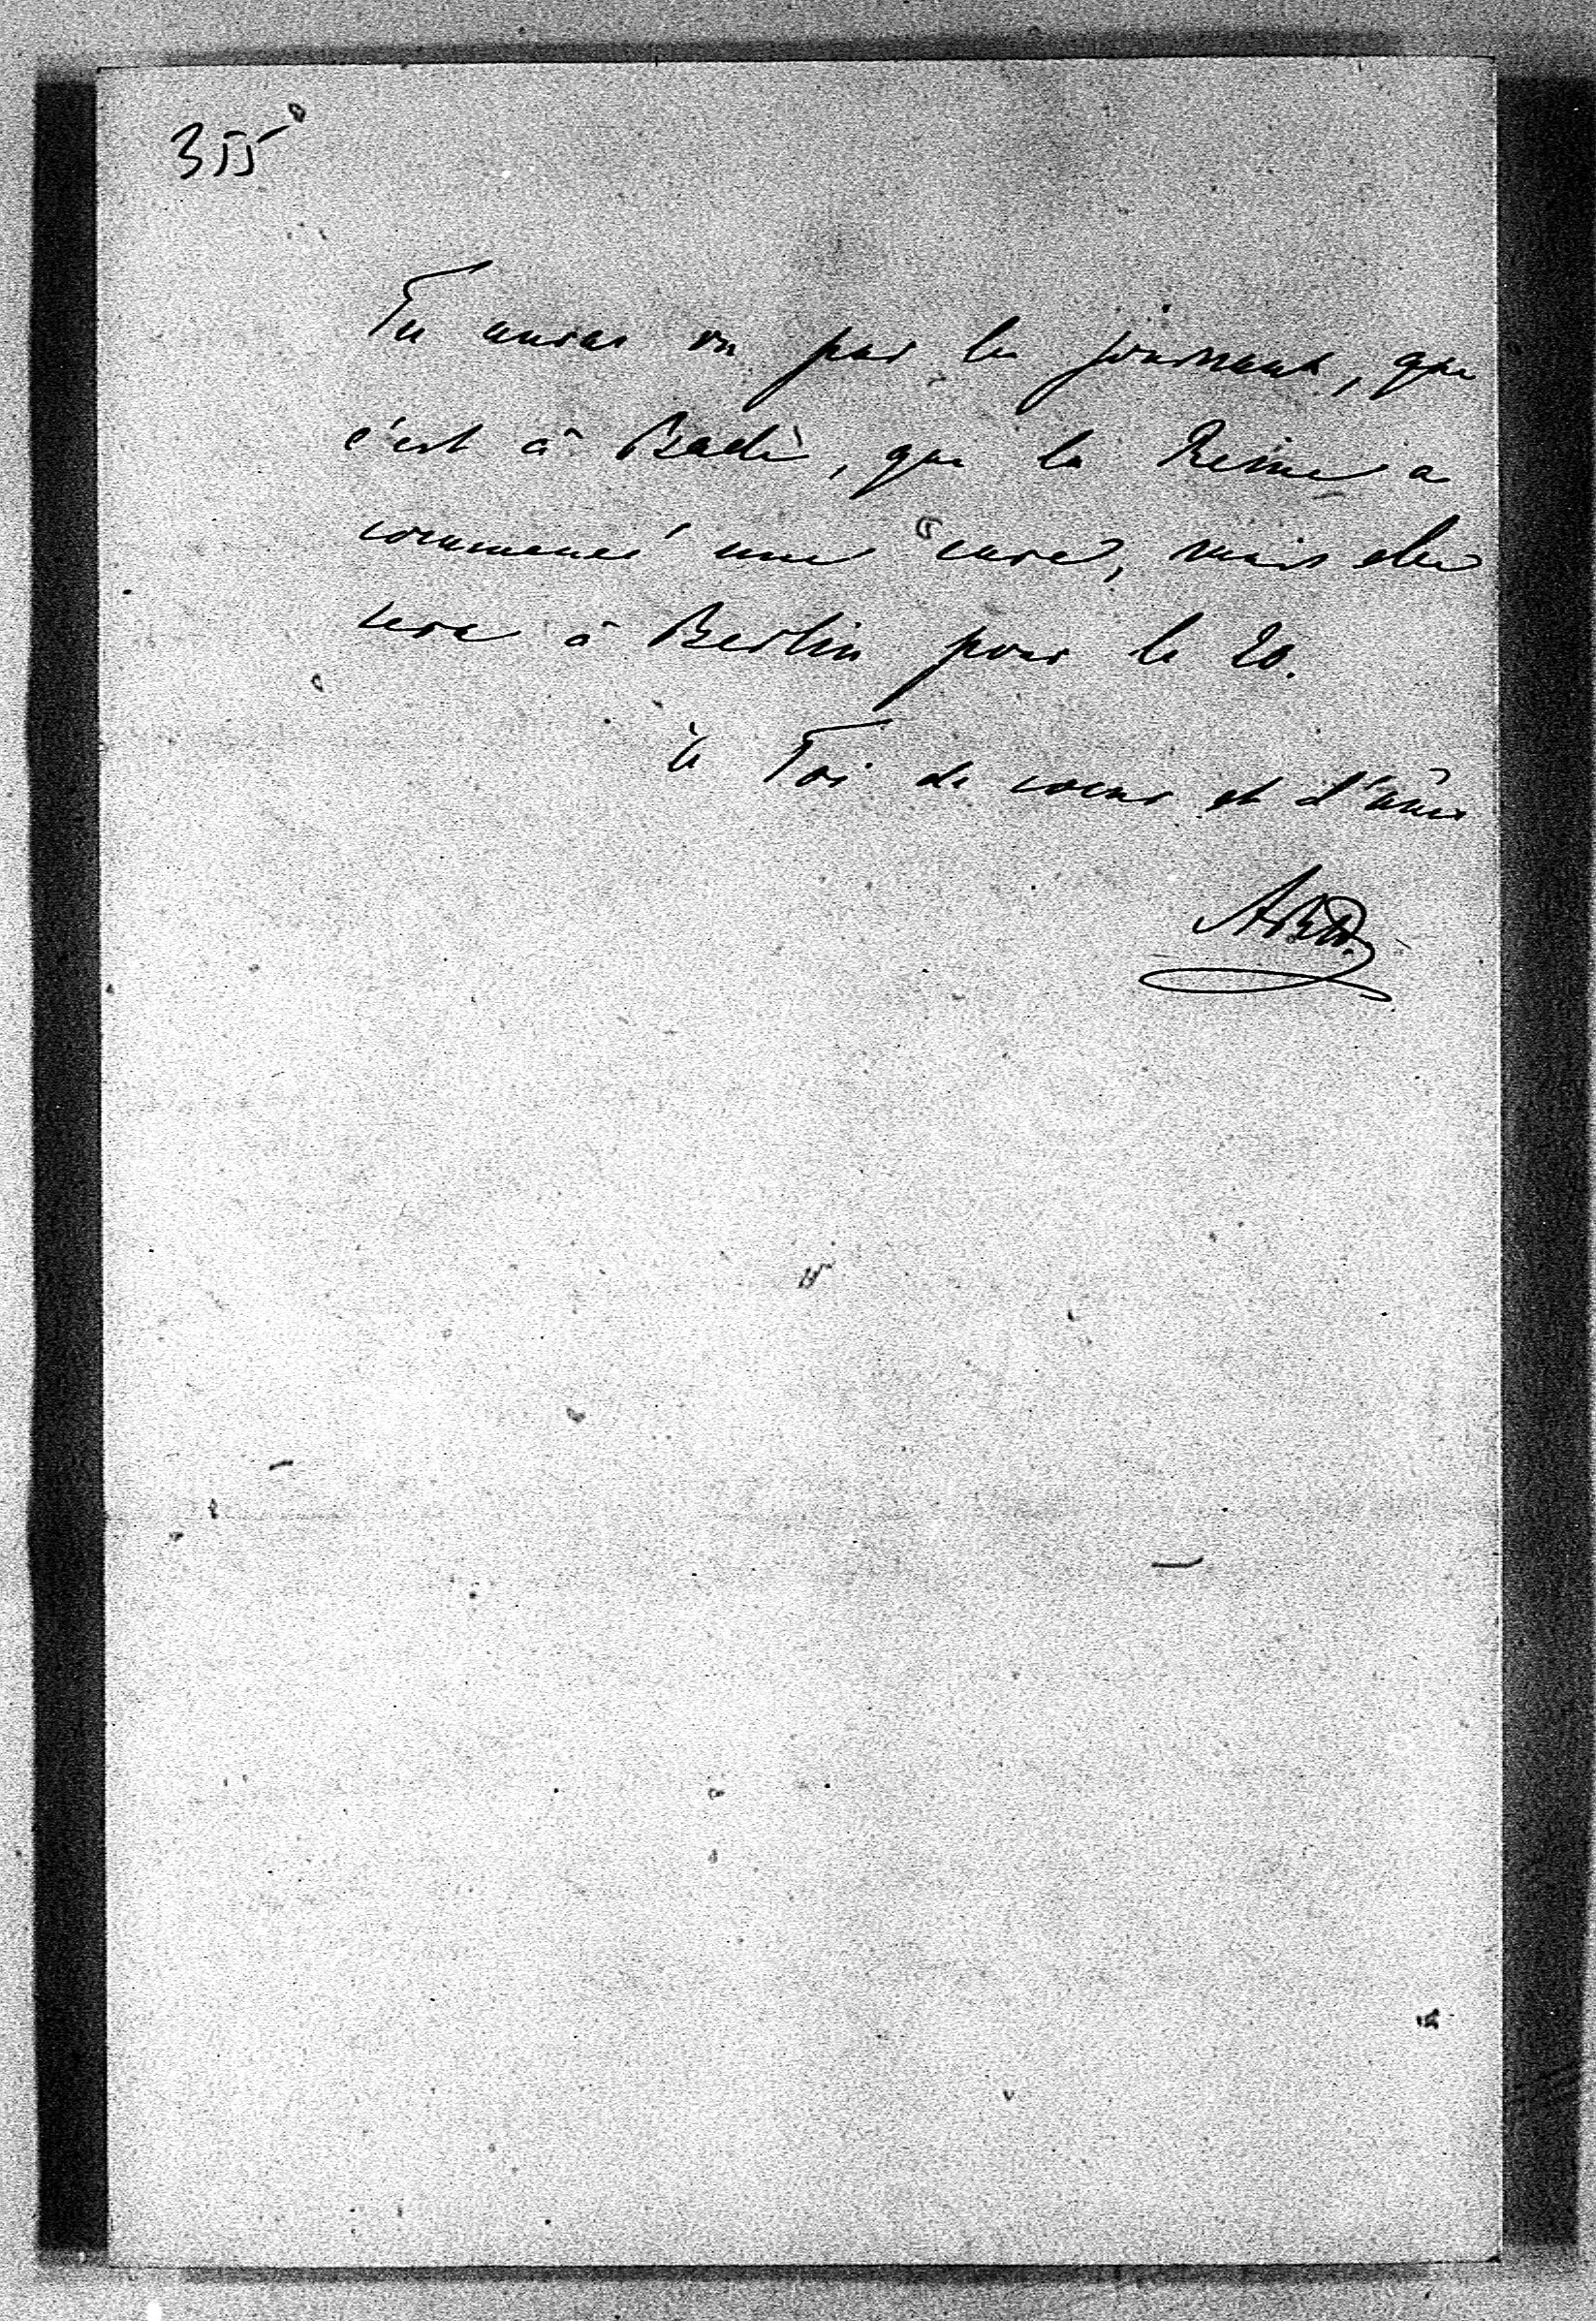 355
Tu auras vu par les journaux, que
c'est à Bade, que la Reine a
commencé une cure, mais elle
sera à Berlin pour le 20.
à Toi de coeur et d'âme